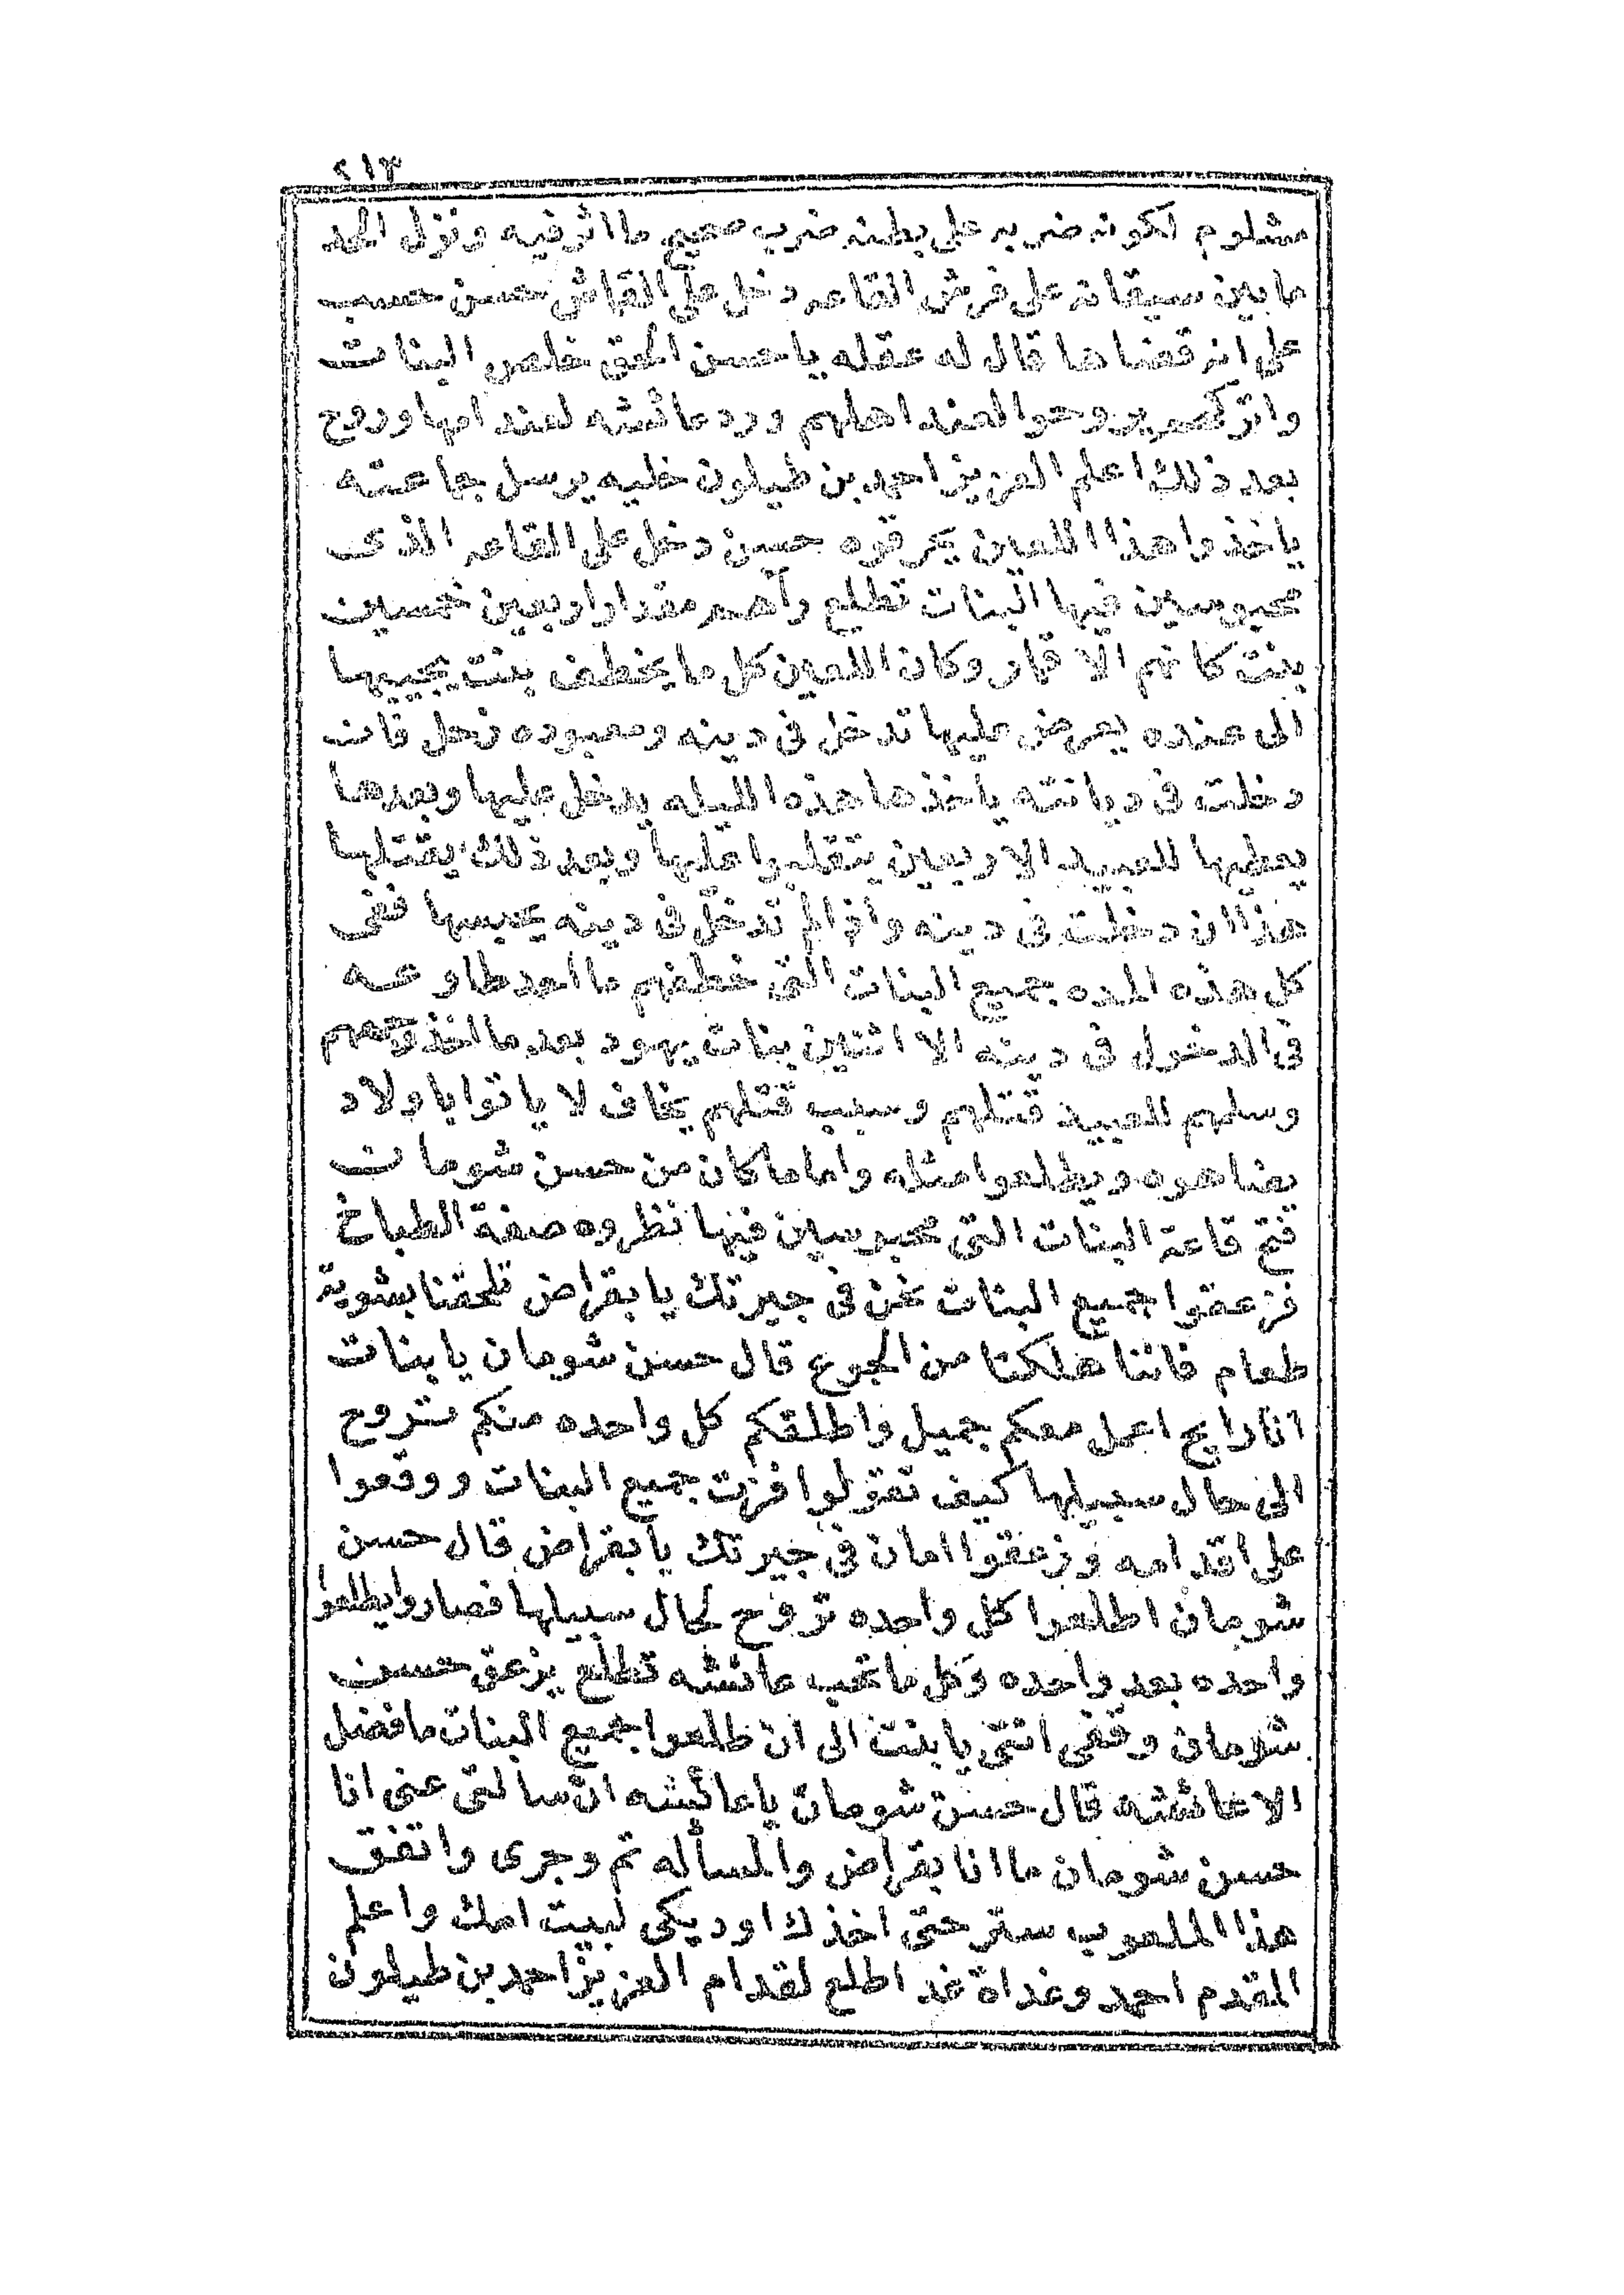 ٤١٣
مشلوم لكونه ضربه على بطنه ضرب صحيح ما اثر فيه ونزل الحد
ما بين سيقانه على فرش القاعه دخل على القماش حسن حسب
على انه قضاها قال له عقله يا حسن الحق خلص البنات
واتركهم يروحوا لعند اهلهم ورد عائشه لعند امها وروح
بعد ذلك اعلم العزيز احمد بن طيلون خليه يرسل جماعته
ياخذوا هذا اللعين يحرقوه حسن دخل على القاعه الذى
محبوسين فيها البنات تطلع رآهم مقدار اربعين خمسين
بنت كانهم الاقمار وكان اللعين كل ما يخطف بنت يجيبها
الى عنده يعرض عليها تدخل فى دينه ومعبوده زحل فان
دخلت فى ديانته ياخذها هذه الليله يدخل عليها وبعدها
يعطيها للعبيد الاربعين يتقلبوا عليها وبعد ذلك يقتلها
هذا ان دخلت فى دينه واذا لم تدخل فى دينه يحبسها ففى
كل هذه المده جميع البنات التى خطفهم ما احد طاوعه
فى الدخول فى دينه الا اثنين بنات يهود بعد ما اخذ وجههم
وسلهم للعبيد قتلهم وسبب قتلهم يخاف لا ياتوا باولاد
يضاهوه ويطلعوا مثله واما ما كان من حسن شومان
فتح قاعة البنات التى محبوسين فيها نظروه صفة الطباخ
فزعقوا جميع البنات نحن فى جيرتك يا بقراض تلحقنا بشوية
طعام فاننا هلكنا من الجوع قال حسن شومان يا بنات
انا رايح اعمل معكم جميل واطلقكم كل واحده منكم تروح
الى حال سبيلها كيف تقولوا فزت جميع البنات ووقعوا
على اقدامه وزعقوا امان فى جيرتك يا بقراض قال حسن
شومان اطلعوا كل واحده تروح لحال سبيلها فصاروا يطلعوا
واحده بعد واحده وكل ما تجب عائشه تطلع يزعق حسن
شومان وقفى انتى يا بنت الى ان طلعوا جميع البنات ما فضل
الا عائشه قال حسن شومان يا عائشه ان سالتى عنى انا
حسن شومان ما انا بقراض والمسأله تم وجرى واتفق
هذا الملعوب ستر حتى اخذك اوديكى لبيت امك واعلم
المقدم احمد وغداة غد اطلع لقدام العزيز احمد بن طيلون